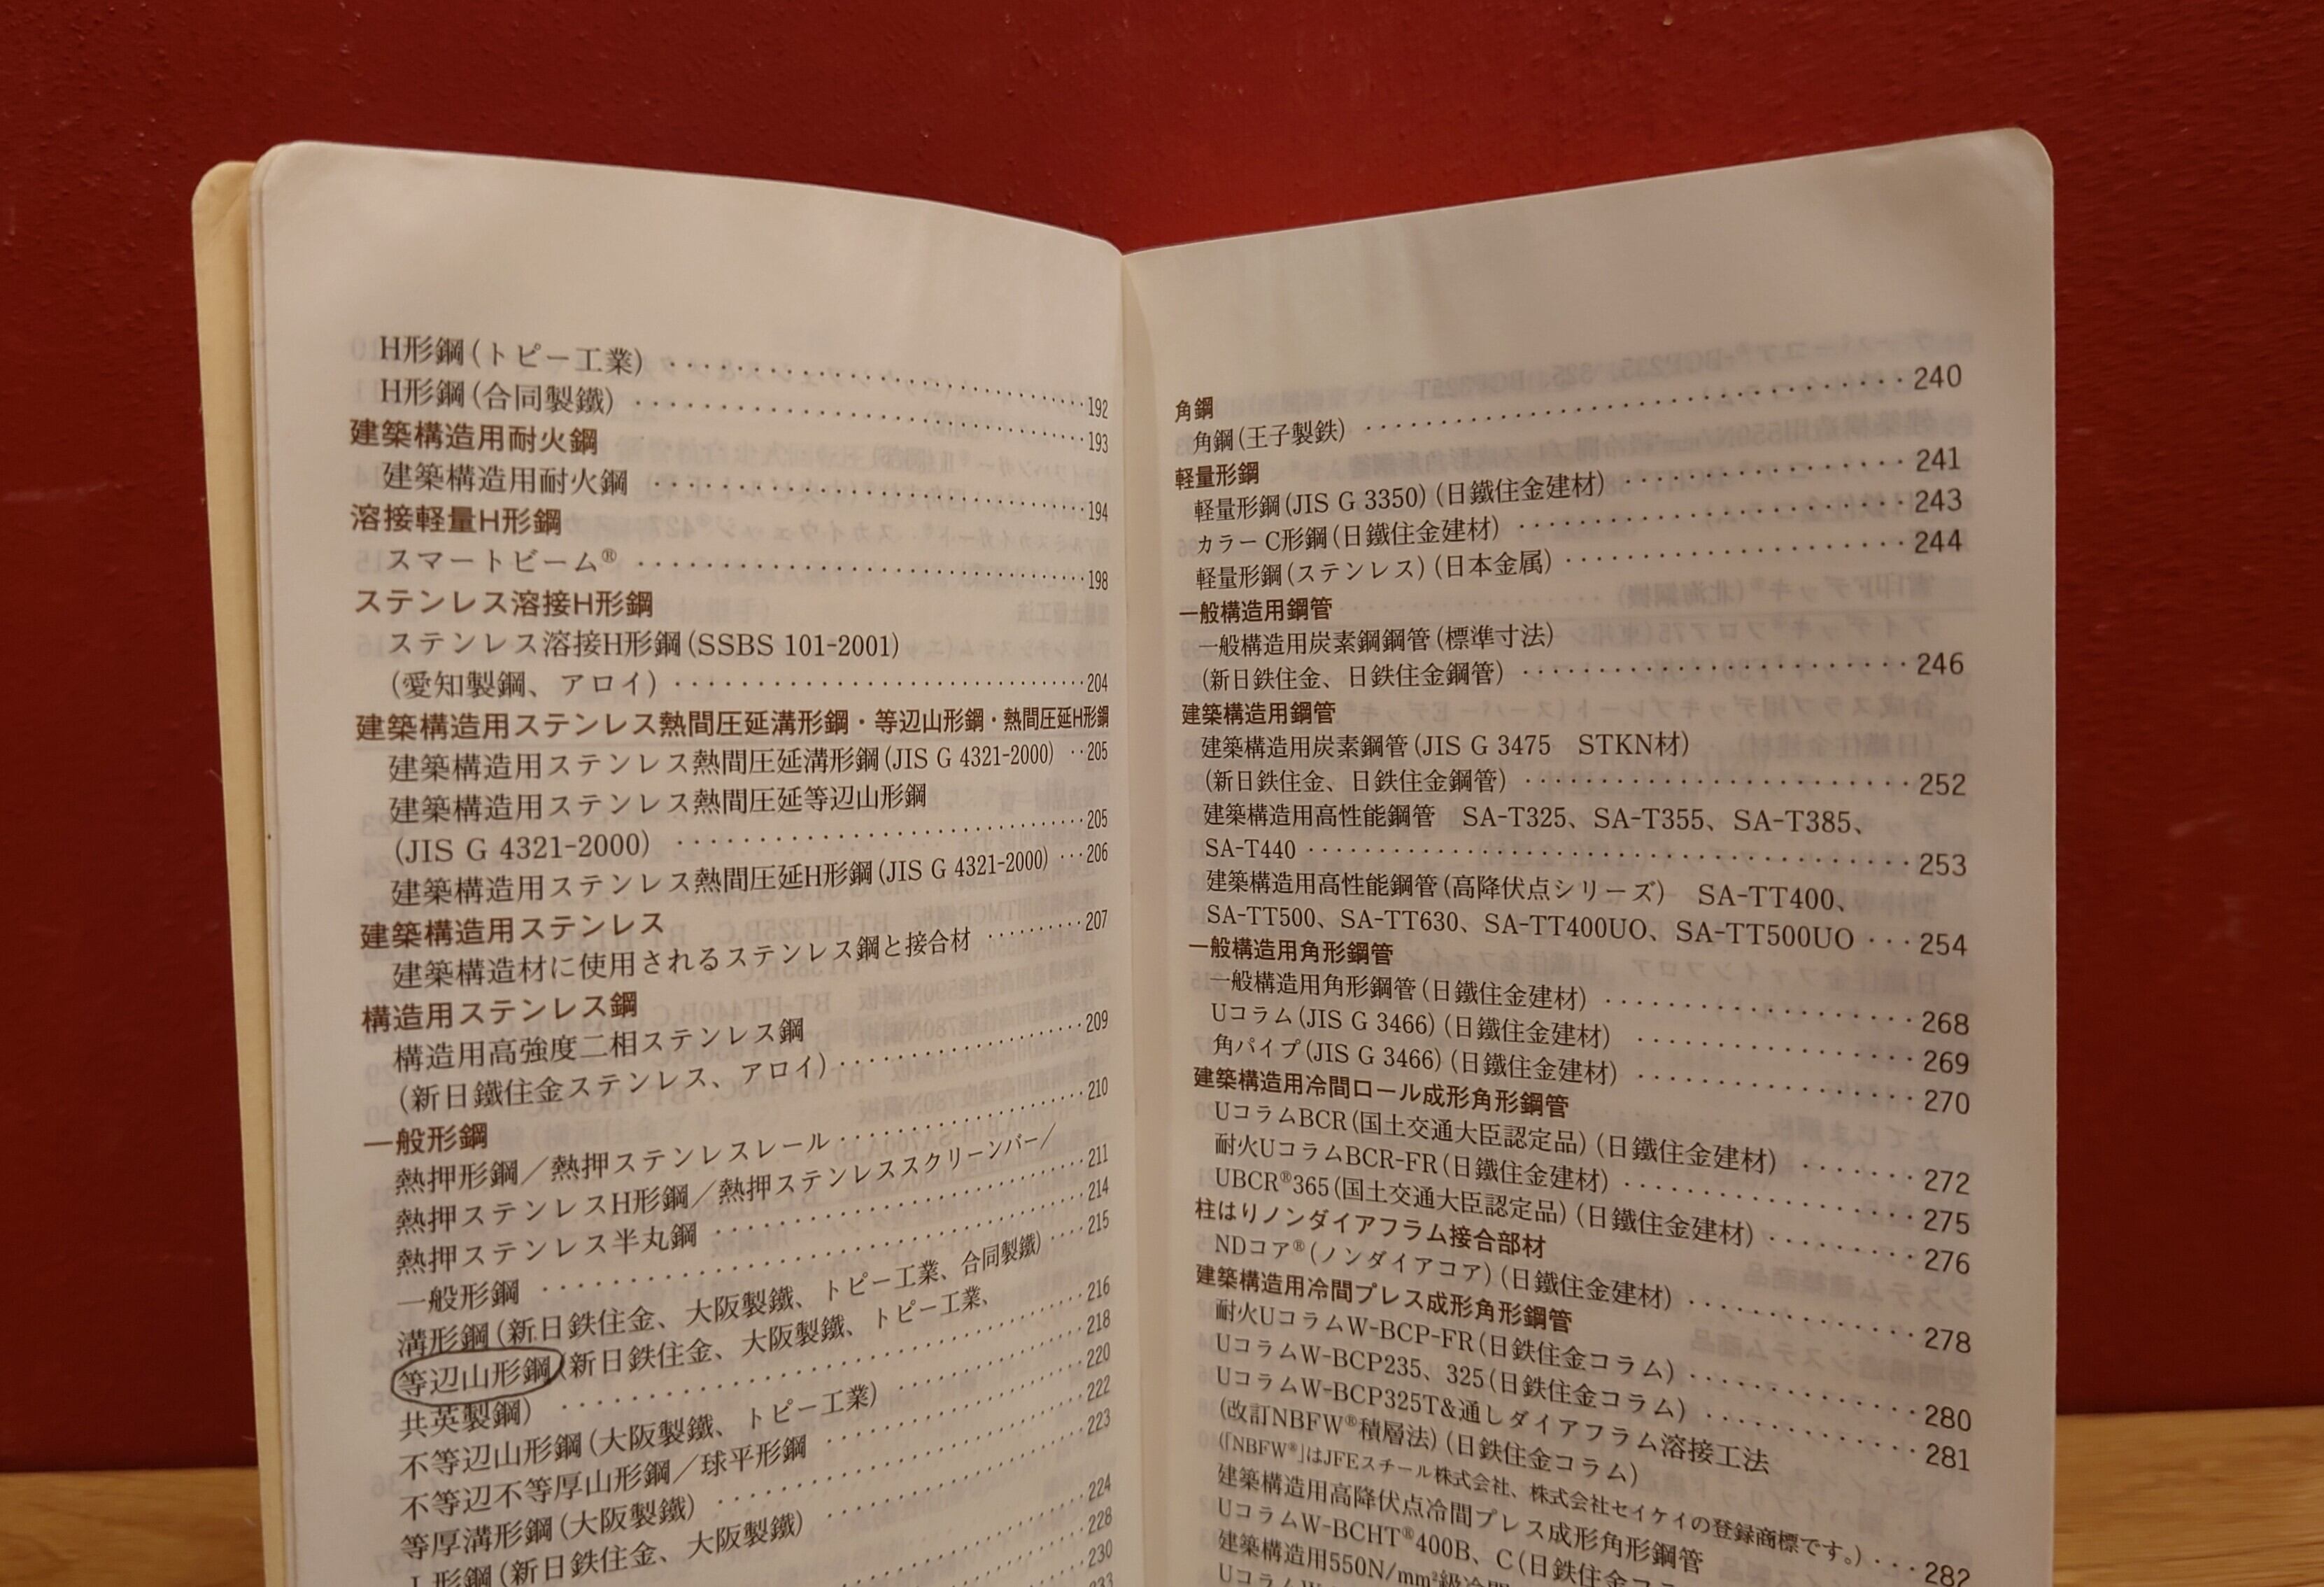 H形鋼(トピー工業) 192
H形鋼(合同製鐵) 193
建築構造用耐火鋼
建築構造用耐火鋼 194
溶接軽量H形鋼
スマートビーム® 198
ステンレス溶接H形鋼
ステンレス溶接H形鋼(SSBS 101-2001)
(愛知製鋼、アロイ) 204
建築構造用ステンレス熱間圧延溝形鋼・等辺山形鋼・熱間圧延H形鋼
建築構造用ステンレス熱間圧延溝形鋼(JIS G 4321-2000) 205
建築構造用ステンレス熱間圧延等辺山形鋼
(JIS G 4321-2000) 205
建築構造用ステンレス熱間圧延H形鋼(JIS G 4321-2000) 206
建築構造用ステンレス
建築構造材に使用されるステンレス鋼と接合材 207
構造用ステンレス鋼
構造用高強度二相ステンレス鋼
(新日鐵住金ステンレス、アロイ) 209
一般形鋼
熱押形鋼/熱押ステンレスレール 210
熱押ステンレスH形鋼/熱押ステンレススクリーンバー/
熱押ステンレス半丸鋼 211
一般形鋼 214
溝形鋼(新日鉄住金、大阪製鐵、トピー工業、合同製鐵) 215
等辺山形鋼(新日鉄住金、大阪製鐵、トピー工業、
共英製鋼) 216
不等辺山形鋼(大阪製鐵、トピー工業) 218
不等辺不等厚山形鋼/球平形鋼 220
等厚溝形鋼(大阪製鐵) 222
I形鋼(新日鉄住金、大阪製鐵) 223
224
228
230
233
角鋼
角鋼(王子製鉄) 240
軽量形鋼
軽量形鋼(JIS G 3350)(日鐵住金建材) 241
カラーC形鋼(日鐵住金建材) 243
軽量形鋼(ステンレス)(日本金属) 244
一般構造用鋼管
一般構造用炭素鋼鋼管(標準寸法)
(新日鉄住金、日鉄住金鋼管) 246
建築構造用鋼管
建築構造用炭素鋼管(JIS G 3475 STKN材)
(新日鉄住金、日鉄住金鋼管) 252
建築構造用高性能鋼管 SA-T325、SA-T355、SA-T385、
SA-T440 253
建築構造用高性能鋼管(高降伏点シリーズ) SA-TT400、
SA-TT500、SA-TT630、SA-TT400UO、SA-TT500UO 254
一般構造用角形鋼管
一般構造用角形鋼管(日鐵住金建材) 268
Uコラム(JIS G 3466)(日鐵住金建材) 269
角パイプ(JIS G 3466)(日鐵住金建材) 270
建築構造用冷間ロール成形角形鋼管
UコラムBCR(国土交通大臣認定品)(日鐵住金建材) 272
耐火UコラムBCR-FR(日鐵住金建材) 275
UBCR®365(国土交通大臣認定品)(日鐵住金建材) 276
柱はりノンダイアフラム接合部材
NDコア®(ノンダイアコア)(日鐵住金建材) 278
建築構造用冷間プレス成形角形鋼管
耐火UコラムW-BCP-FR(日鉄住金コラム) 280
UコラムW-BCP235、325(日鉄住金コラム) 281
UコラムW-BCP325T&通しダイアフラム溶接工法
(改訂NBFW®積層法)(日鉄住金コラム)
(「NBFW®」はJFEスチール株式会社、株式会社セイケイの登録商標です。) 282
建築構造用高降伏点冷間プレス成形角形鋼管
UコラムW-BCHT®400B、C(日鉄住金コラ
建築構造用550N/mm²級冷間